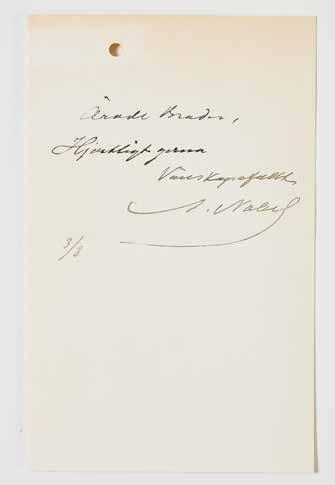 Ärade Broder,
Hjertligt gerna
Vänskapsfullt
A. Nobel
3/8